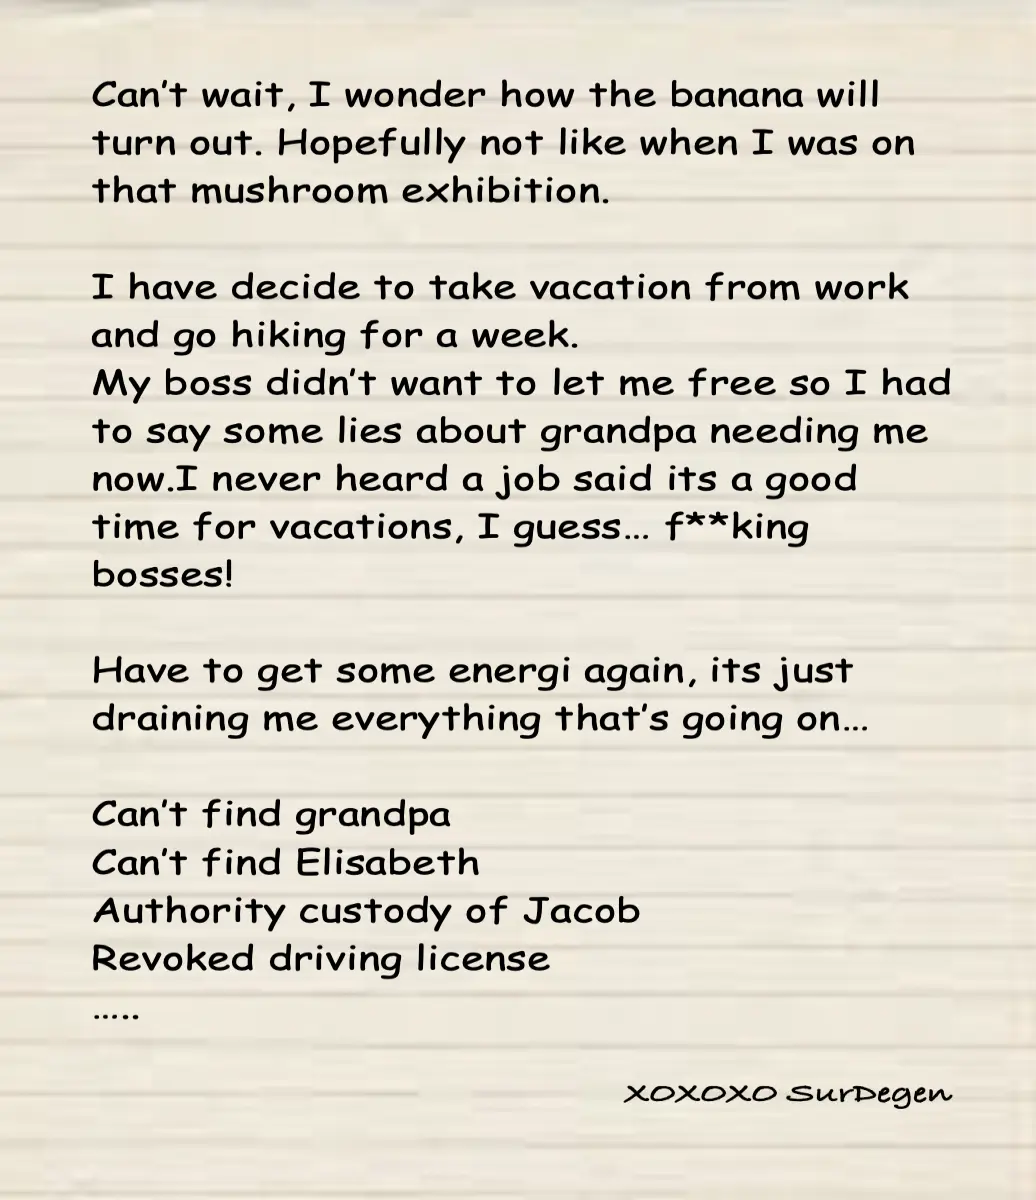 Can't wait, I wonder how the banana will
turn out. Hopefully not like when I was on
that mushroom exhibition.
I have decide to take vacation from work
and go hiking for a week.
My boss didn't want to let me free so I had
to say some lies about grandpa needing me
now.I never heard a job said its a good
time for vacations, I guess... f**king
bosses!
Have to get some energi again, its just
draining me everything that's going on...
Can't find grandpa
Can't find Elisabeth
Authority custody of Jacob
Revoked driving license
.....
XOXOXO SurDegen